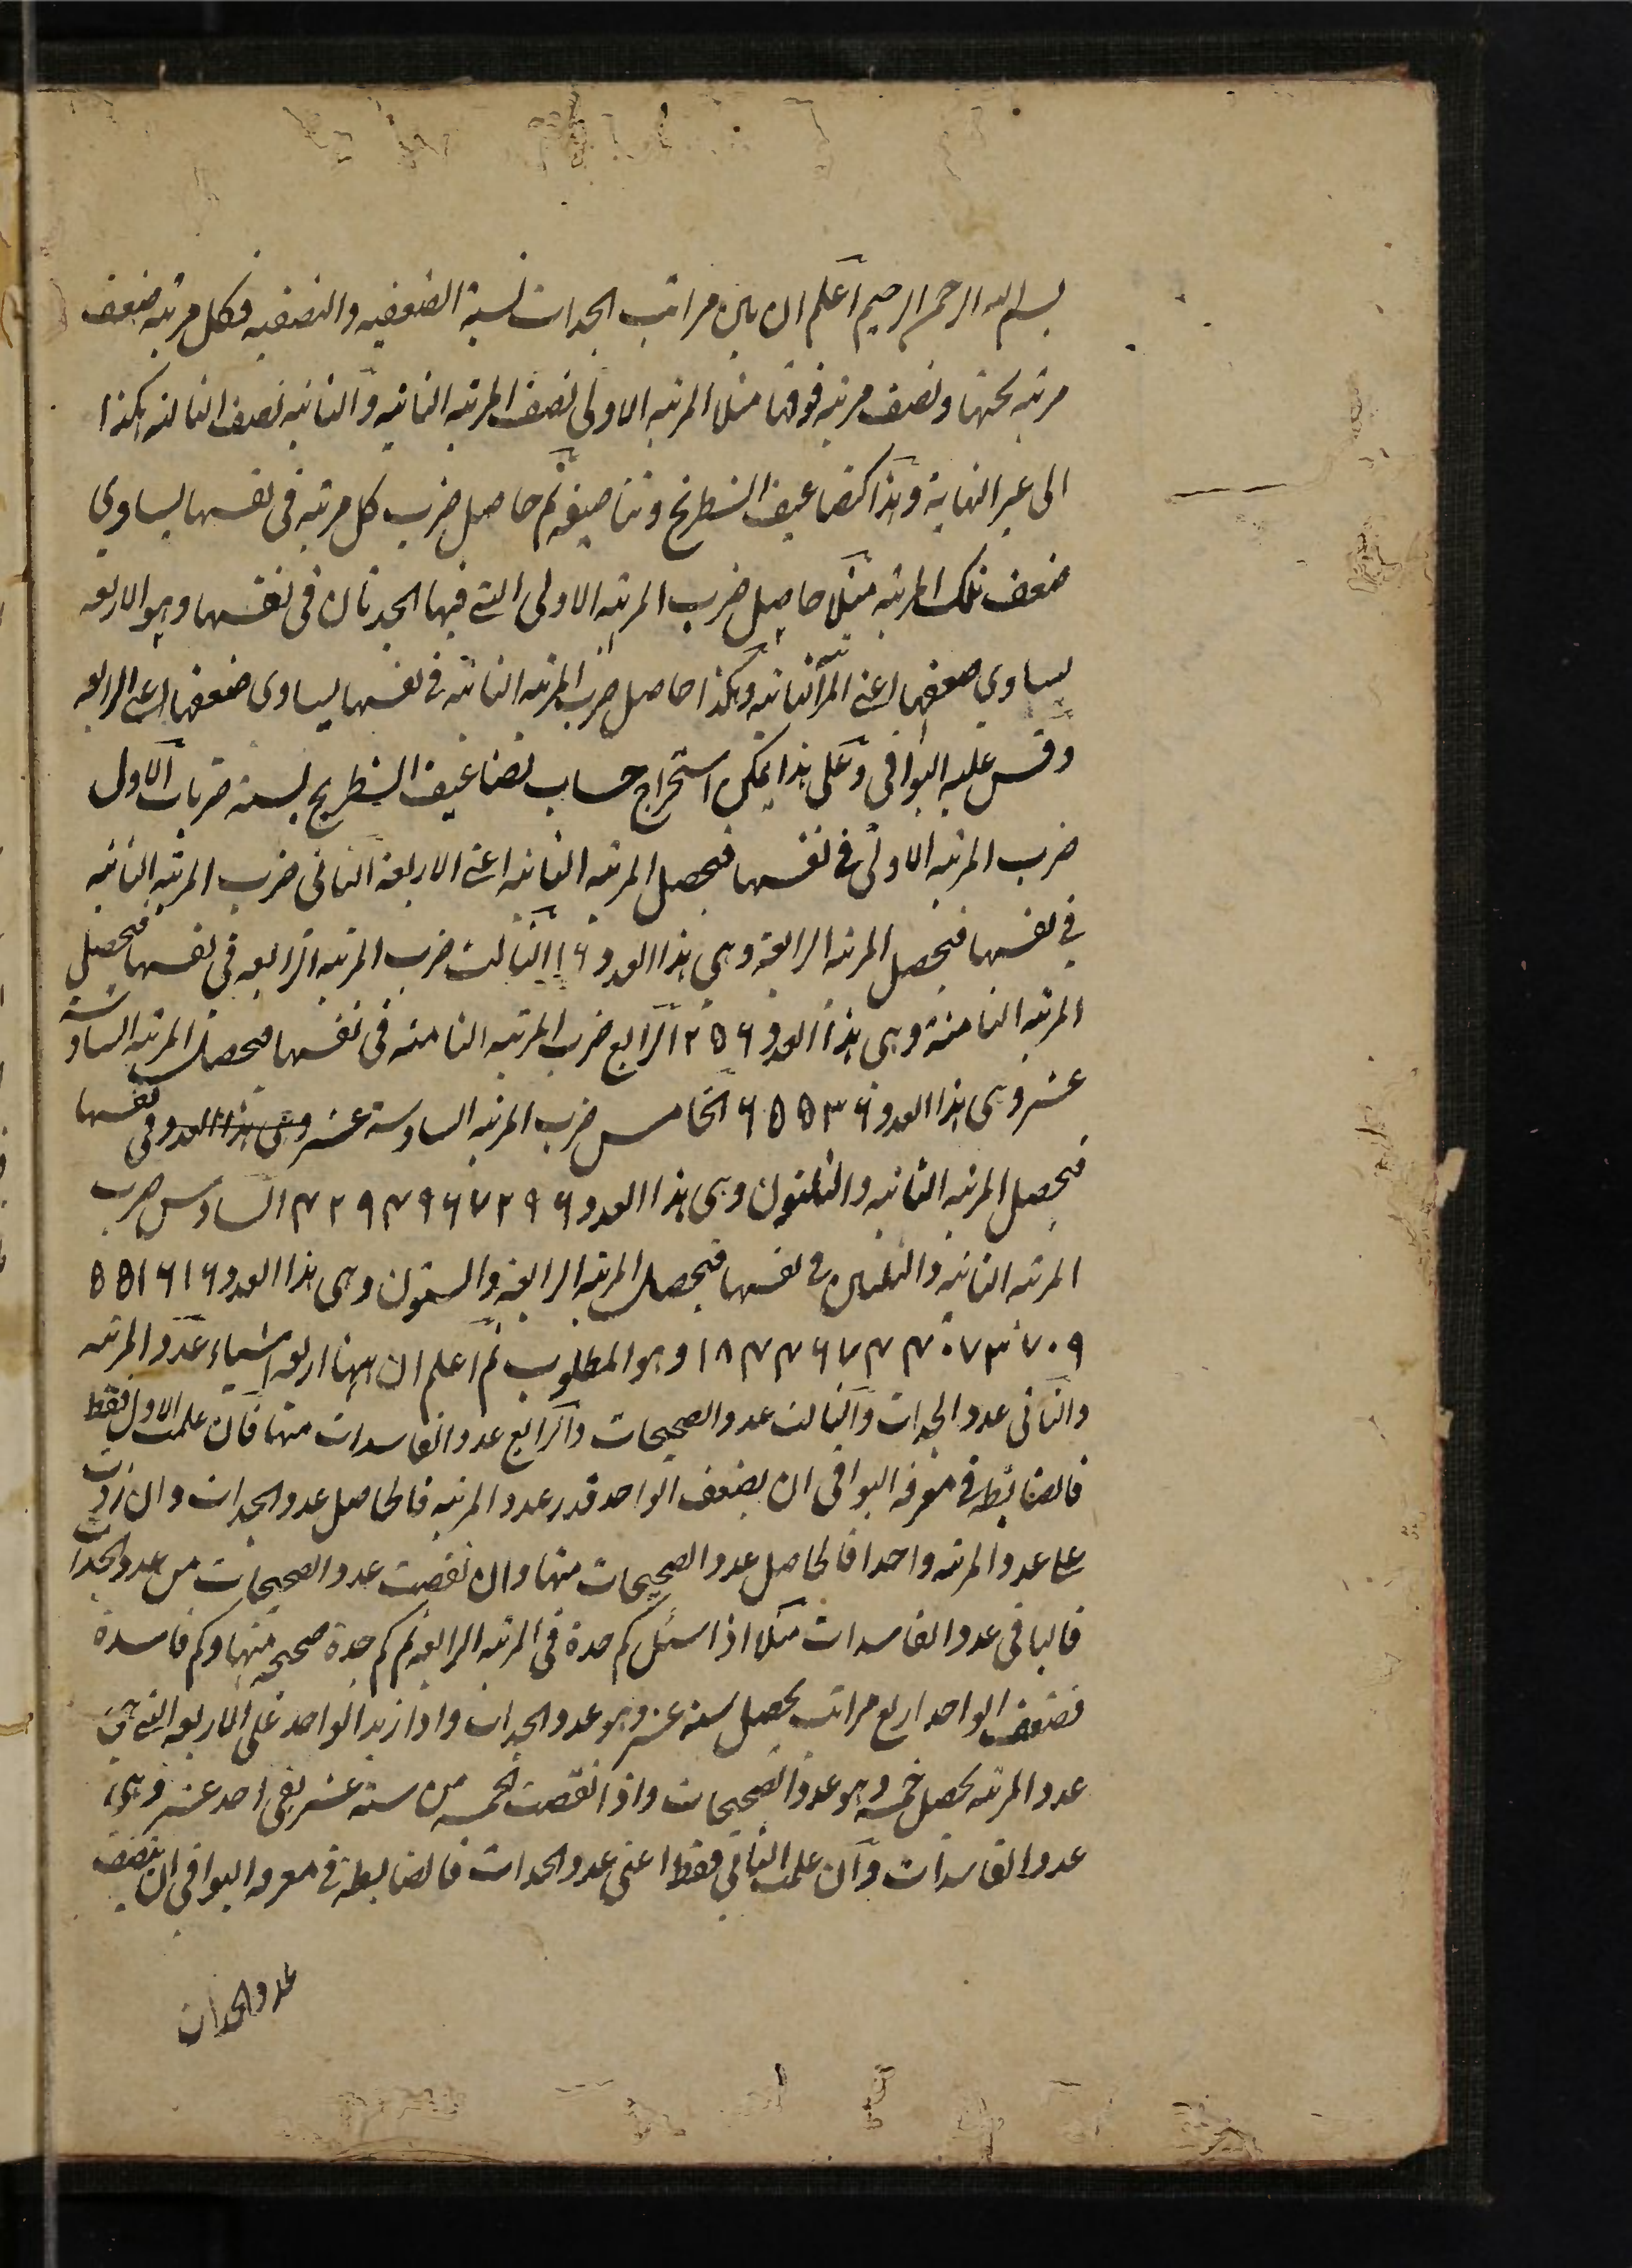 بسم الله الرحمن الرحيم اعلم ان بين مراتب الجدات نسبة الضعفيه والنصفيه فكل مرتبه ضعف
مرتبه تحتها ونصف مرتبه فوقها مثلا المرتبه الاولى نصف المرتبه الثانيه والثانيه نصف الثالثه هكذا
الى غير النهاية وهذا كتضاعيف الشطرنج وتناصيفه ثم حاصل ضرب كل مرتبه في نفسها يساوي
ضعف تلك المرتبه مثلا حاصل ضرب المرتبه الاولى التي فيها الجدتان في نفسها وهو الاربعه
يساوي ضعفها اعني الثانيه وهكذا حاصل ضرب المرتبه الثانيه في نفسها يساوى ضعفها اعني الرابعه
وقس عليه البواقي وعلى هذا يمكن استخراج حساب تضاعيف الشطرنج بستة ضربات الاول
ضرب المرتبه الاولى في نفسها فيحصل المرتبه الثانيه اعني الاربعة الثاني ضرب المرتبه الثانيه
في نفسها فيحصل المرتبه الرابعة وهي هذا العدد ١٦ الثالث ضرب المرتبه الرابعه في نفسها فيحصل
المرتبه الثامنة وهي هذا العدد ٢٥٦ الرابع ضرب المرتبه الثامنه في نفسها فيحصل المرتبه السادسة
عشر وهي هذا العدد ٦٥٥٣٦ الخامس ضرب المرتبه السادسة عشر وهي هذا العدد في نفسها
فيحصل المرتبه الثانيه والثلثون وهي هذا العدد ٤٢٩٤٩٦٧٢٩٦ السادس ضرب
المرتبه الثانيه والثلثين في نفسها فيحصل المرتبة الرابعة والستون وهي هذا العدد ٥٥١٦١٦
١٨٤٤٦٧٤٤٠٧٣٧٠٩ وهو المطلوب ثم اعلم ان ههنا اربعه اشياء عدد المرتبه
والثاني عدد الجدات والثالث عدد الصحيحات والرابع عدد الفاسدات منها فان علمت الاول فقط
فالضابطه في معرفه البواقي ان يضعف الواحد قدر عدد المرتبه فالحاصل عدد الجدات وان زدت
على عدد المرتبه واحدا فالحاصل عدد الصحيحات منها وان نقصت عدد الصحيحات من عدد الجدات
فالباقي عدد الفاسدات مثلا اذا سئل كم جدة في المرتبه الرابعه ثم كم جدة صحيحه منها وكم فاسدة
فضعف الواحد اربع مراتب يحصل ستة عشر وهو عدد الجدات واذا زيد الواحد على الاربعه التي هي
عدد المرتبه يحصل خمسه وهو عدد الصحيحات واذا نقصت الخمسه من ستة عشر بقي احد عشر وهي
عدد الفاسدات وان علمت الثاني فقط اعني عدد الجدات فالضابطة في معرفه البواقي ان ينصف
عدد الجدات